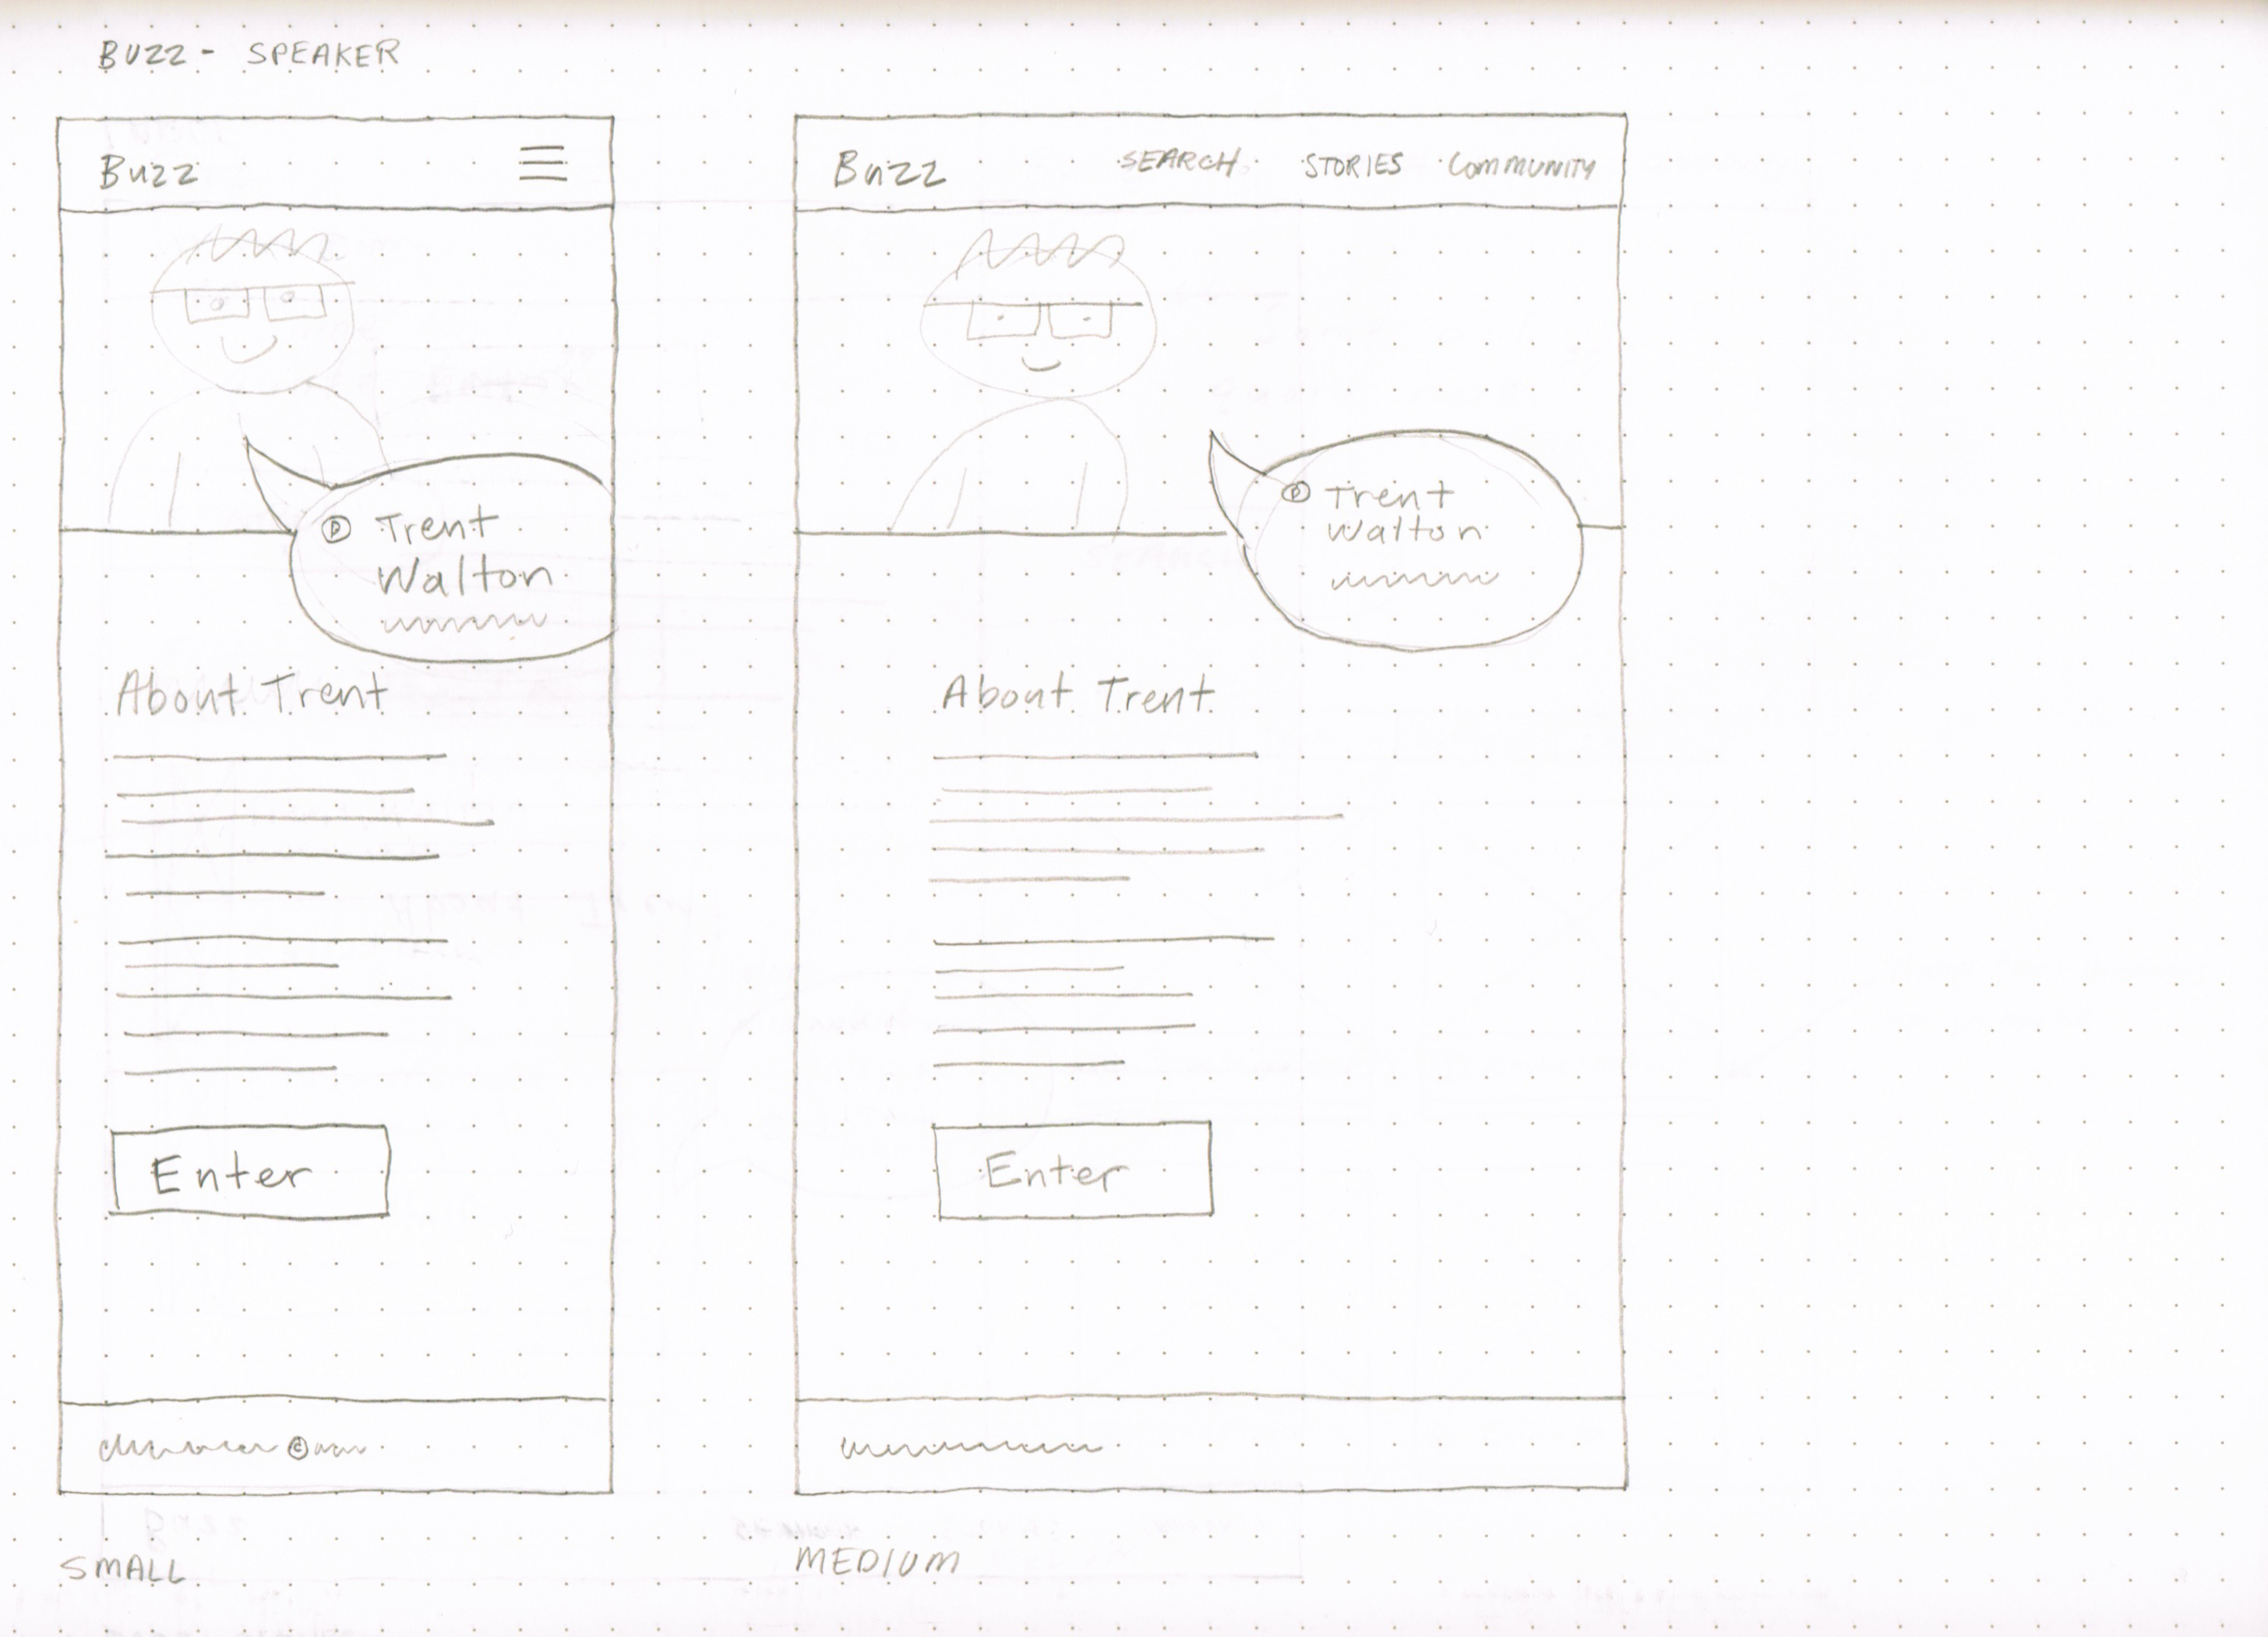 BUZZ - SPEAKER
Buzz
Trent
Walton
About Trent
Enter
©
SMALL
Buzz SEARCH STORIES COMMUNITY
Trent
Walton
About Trent
Enter
MEDIUM